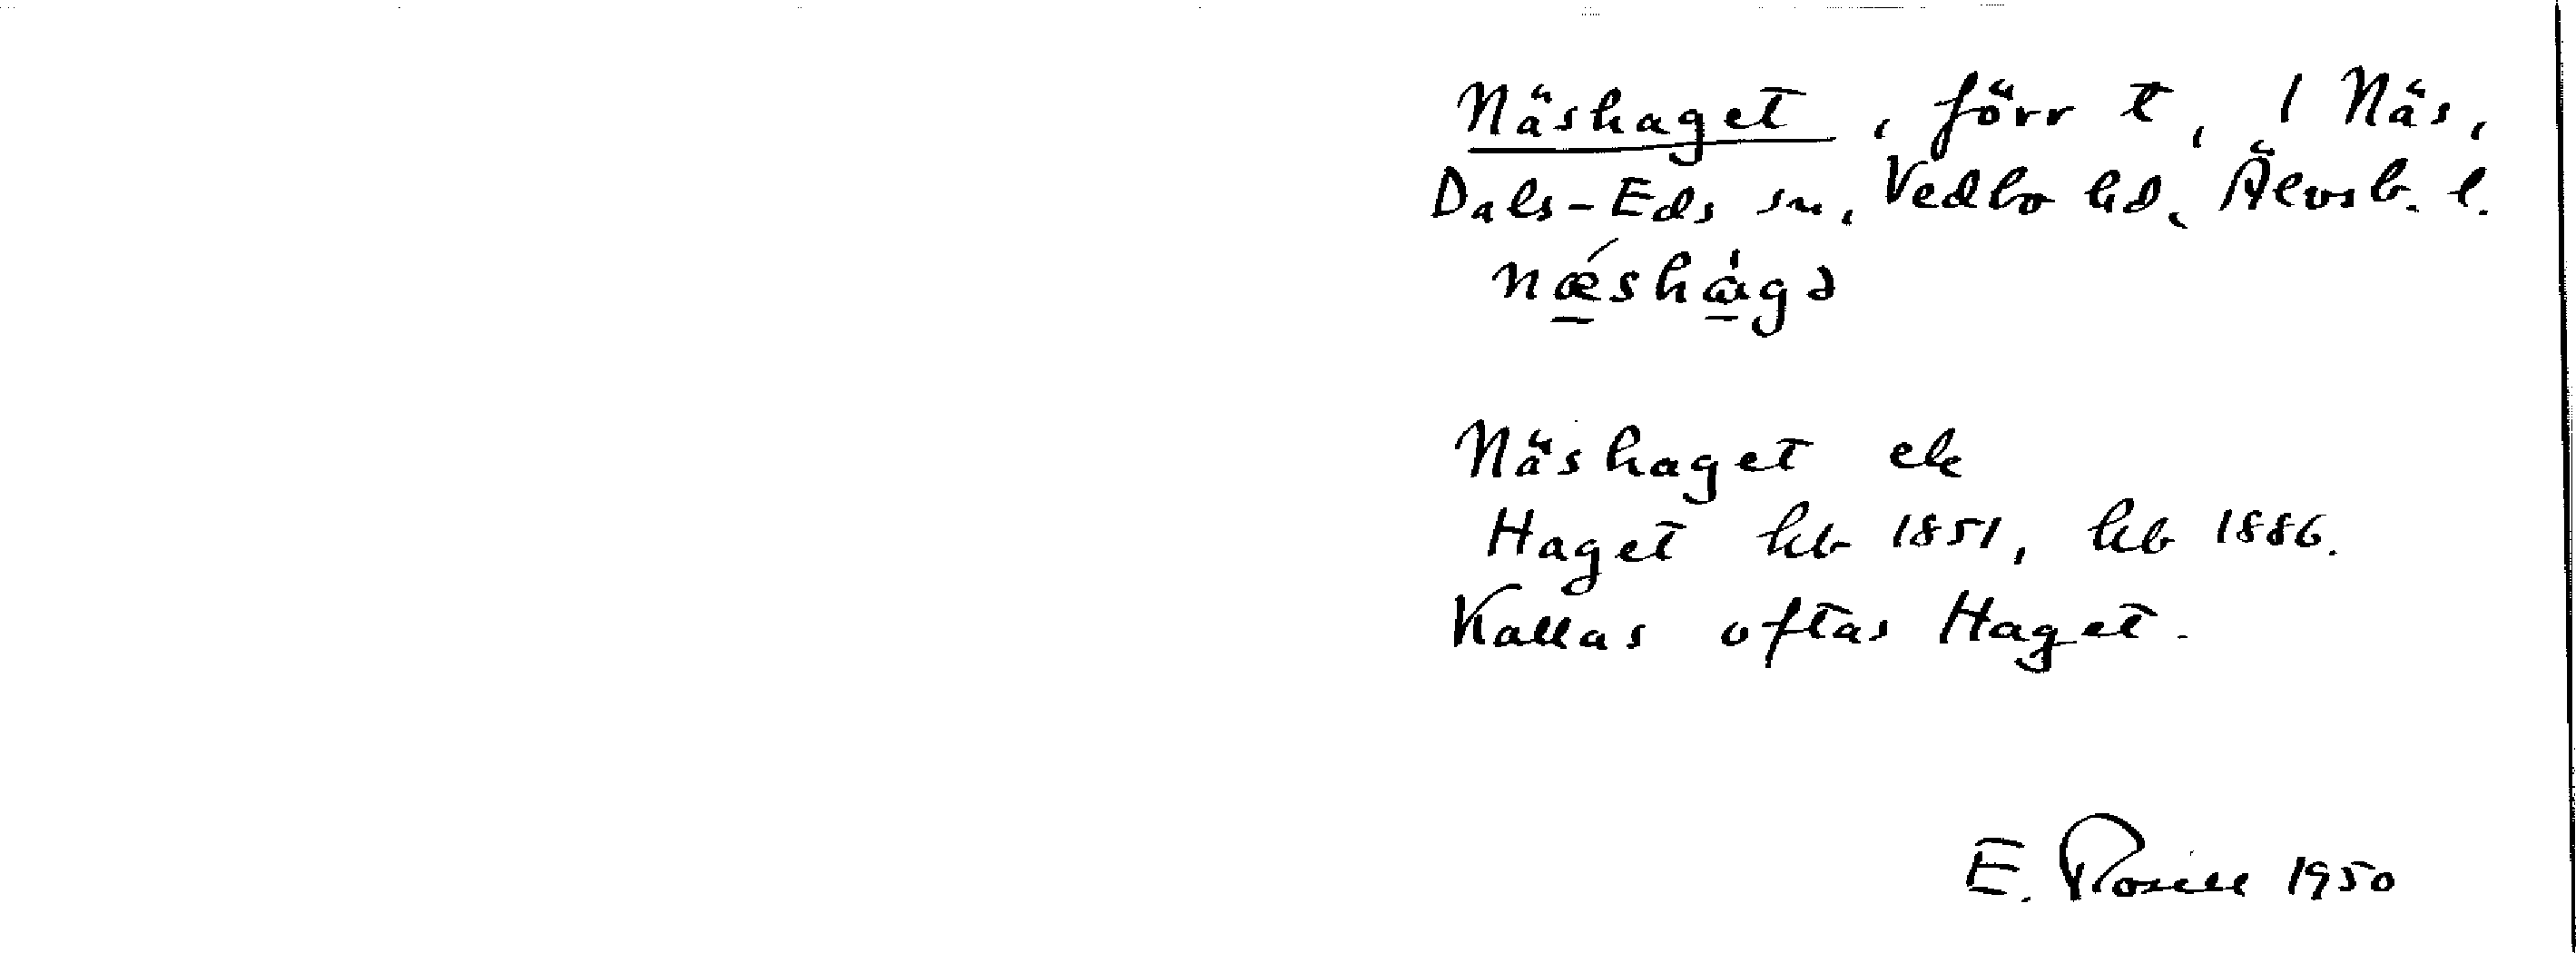 Näshaget, förr t, 1 Näs,
Dals-Eds sn, Vedbo hd, Älvsb. l.
nǽshàgə
Näshaget ek
Haget hb 1851, hb 1886.
Kallas oftas Haget.
E. Rosell 1950